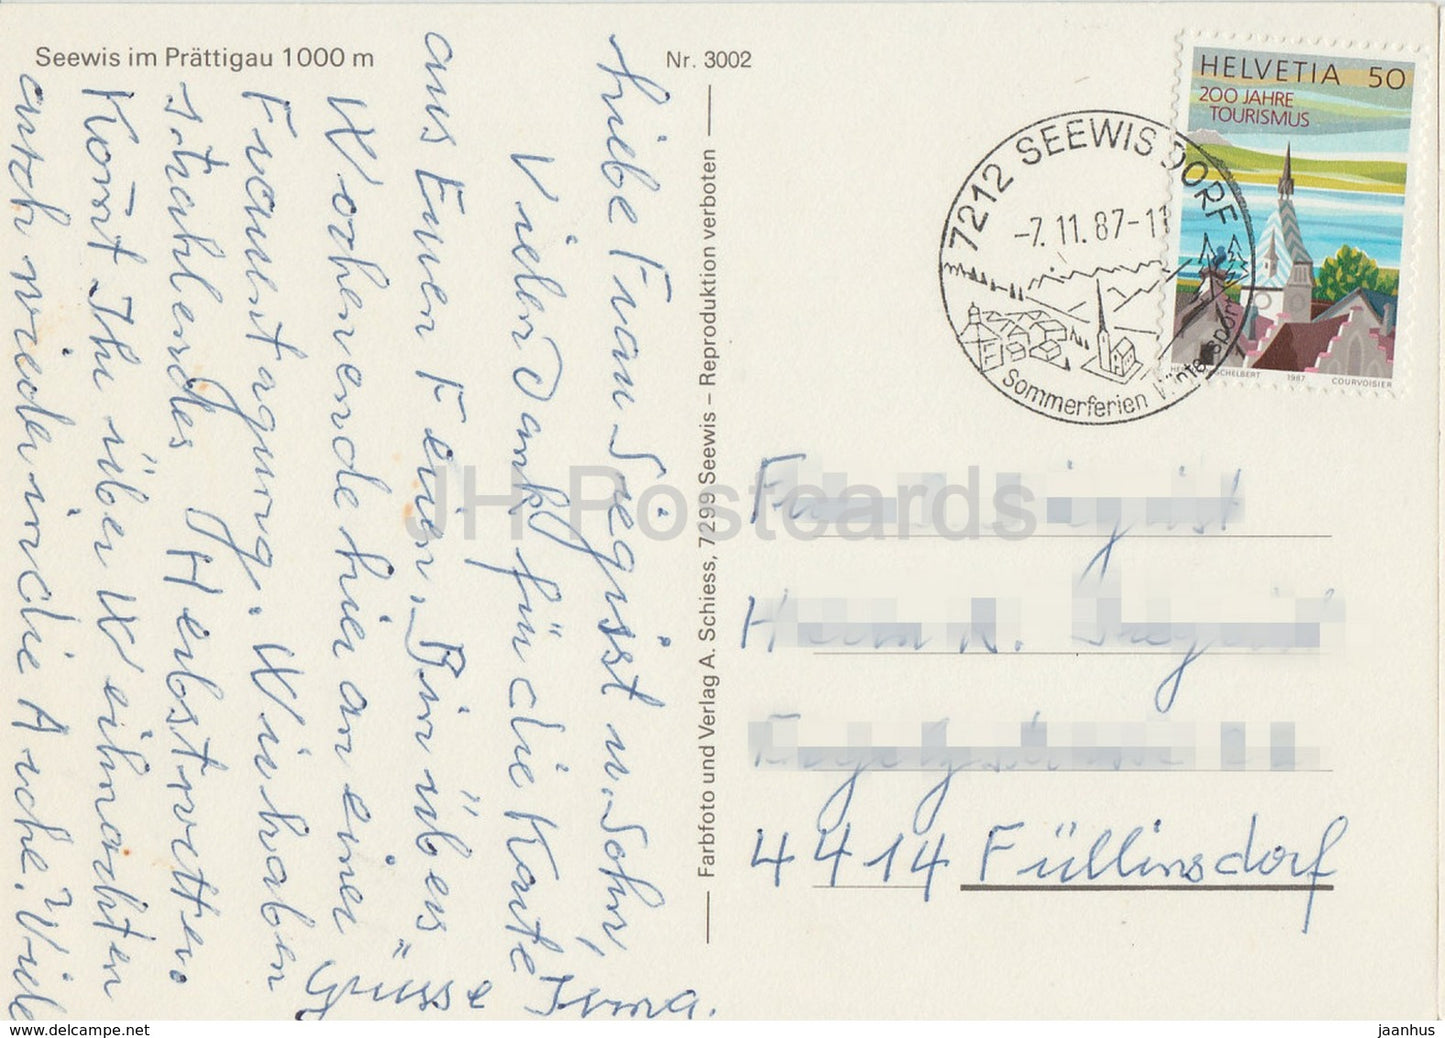 Seewis im Prättigau 1000 m
Nr. 3002
HELVETIA 50
200 JAHRE
TOURISMUS
SCHELBERT 1987 COURVOISIER
7212 SEEWIS DORF
-7.11.87-11
Sommerferien Wintersport
Liebe Frau Siegrist u. Sohn,
Vielen Dank für die Karte
aus Euren Ferien. Bin übers
Wochenende hier an einer
Frauentagung. Wir haben
strahlendes Herbstwetter.
Komt Ihr über Weihnachten
auch wieder in die Arche? Viele
Grüsse Irma.
Farbfoto und Verlag A. Schiess, 7299 Seewis – Reproduktion verboten
4414 Füllinsdorf
JH Postcards
www.delcampe.net
jaanhus